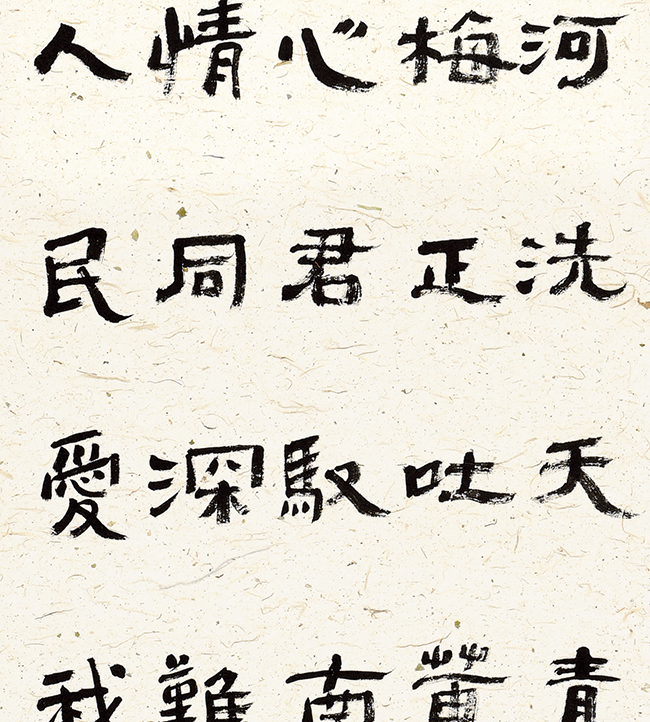 河洗天青
梅正吐黄
心君馭南
情同深難
人民愛我